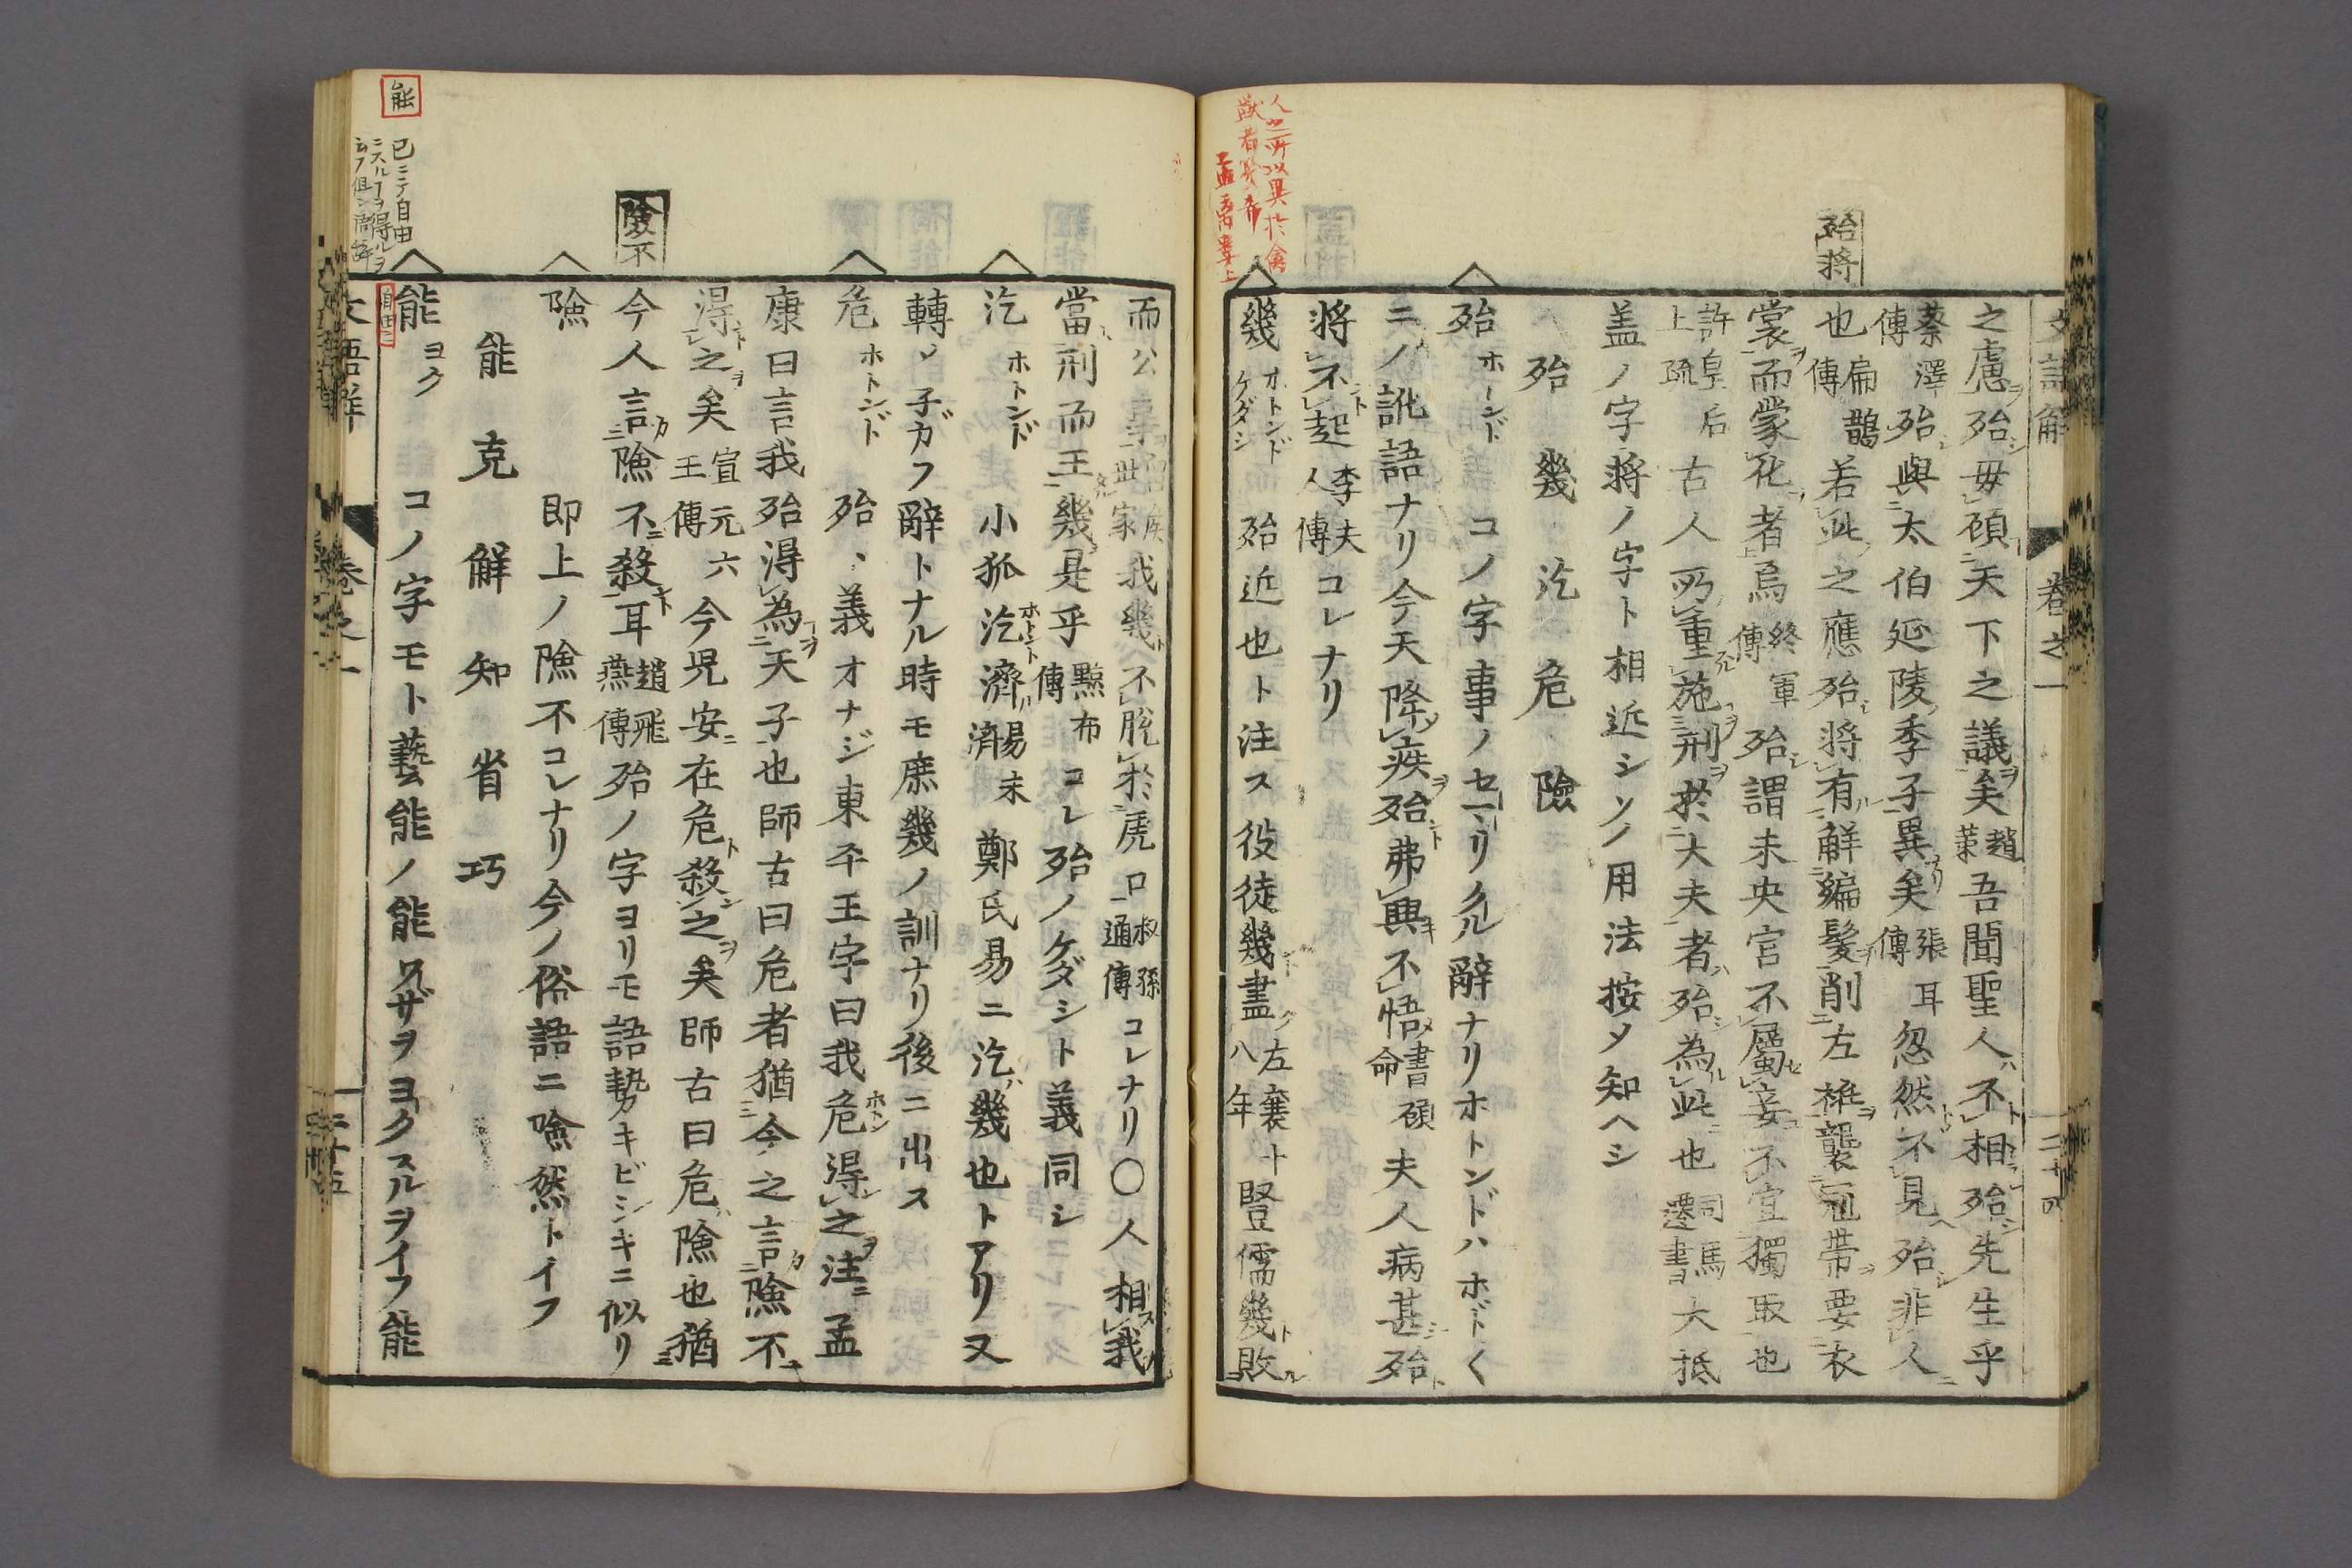 殆將
之慮殆毋頋天下之議矣趙䇿吾聞聖人不相殆先生乎
蔡澤傳殆與太伯延陵季子異矣張耳傳忽然不見殆非人
也扁鵲傳若此之應殆將有解編髮削左袵襲冠帶要衣
裳而蒙化者焉終軍傳殆謂未央宮不屬妾不宜獨取也
許皇后上疏古人所重施刑於大夫者殆為此也司馬遷書大抵
盖ノ字將ノ字ト相近シソノ用法按メ知ヘシ
殆幾汔危險
殆 コノ字事ノセマリタル辭ナリホトンドハホドく
ニノ訛語ナリ今天降疾殆弗興不悟書頋命夫人病甚殆
將不起李夫人傳コレナリ
幾ホトンドケダシ 殆近也ト注ス役徒幾盡左襄十八年豎儒幾敗
人之所以異於禽
獸者幾希
孟離婁上
卷之一
二十四
而公事留侯世家我幾不脫於虎口叔孫通傳コレナリ〇人相我
當刑而王幾是乎黥布傳コレ殆ノケダシト義同シ
汔ホトンド 小狐汔濟易未濟鄭氏易ニ汔幾也トアリ又
轉ノ子ガフ辭トナル時モ庶幾ノ訓ナリ後ニ出ス
危ホトンド 殆、義オナジ東平王宇曰我危得之注ニ孟
康曰言我殆得為天子也師古曰危者猶今之言險不
得之矣宣元六王傳今児安在危殺之矣師古曰危險也猶
險不
今人言險不殺耳趙飛燕傳殆ノ字ヨリモ語勢キビシキニ似リ
險 即上ノ險不コレナリ今ノ俗語ニ險然トイフ
能克解知省巧
能ヨク コノ字モト藝能ノ能ワザヲヨクスルヲイフ能
能
已ニテ自由
ニスルヿヲ得ルヲ
自由ニ
卷之一
二十五